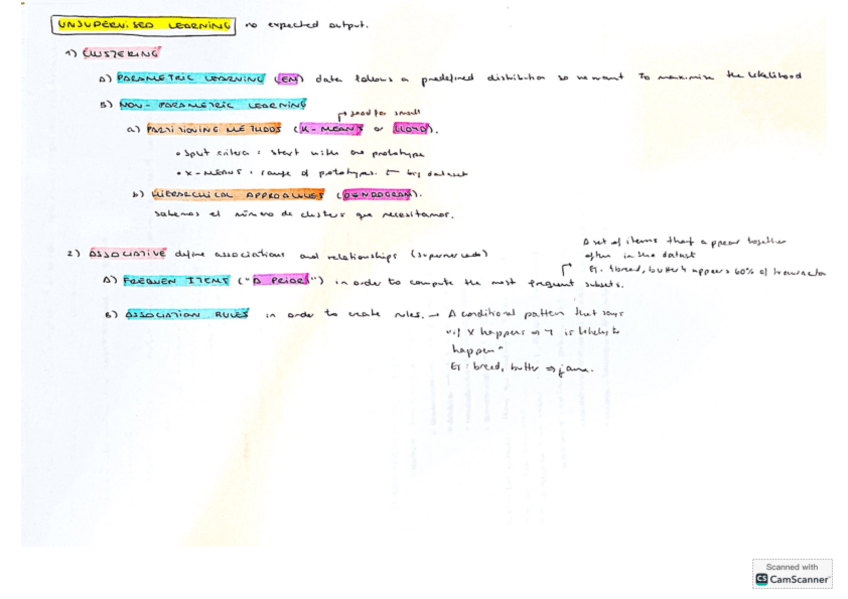 UNSUPERVISED LEARNING no expected output.
1) CLUSTERING
A) PARAMETRIC LEARNING (EM) data follows a predefined distribution so we want to maximise the likelihood
B) NON-PARAMETRIC LEARNING
→ good for small
a) PARTITIONING METHODS (K-MEANS or LLOYD).
• Split criteria: start with one prototype
• X-MEANS: range of prototypes. ← big dataset
b) HIERARCHICAL APPROACHES (DENDOGRAM).
Sabemos el número de clusters que necesitamos.
2) ASSOCIATIVE define associations and relationships (supermercado)
A set of items that appear together
often in the dataset
Ej: {bread, butter} appears 60% of transaction
A) FREQUEN ITEMS ("A PRIORI") in order to compute the most frequent subsets.
B) ASSOCIATION RULES in order to create rules. → A conditional pattern that says
"if X happens ⇒ Y is likely to
happen"
Ej: bread, butter ⇒ jam.
Scanned with
CS CamScanner